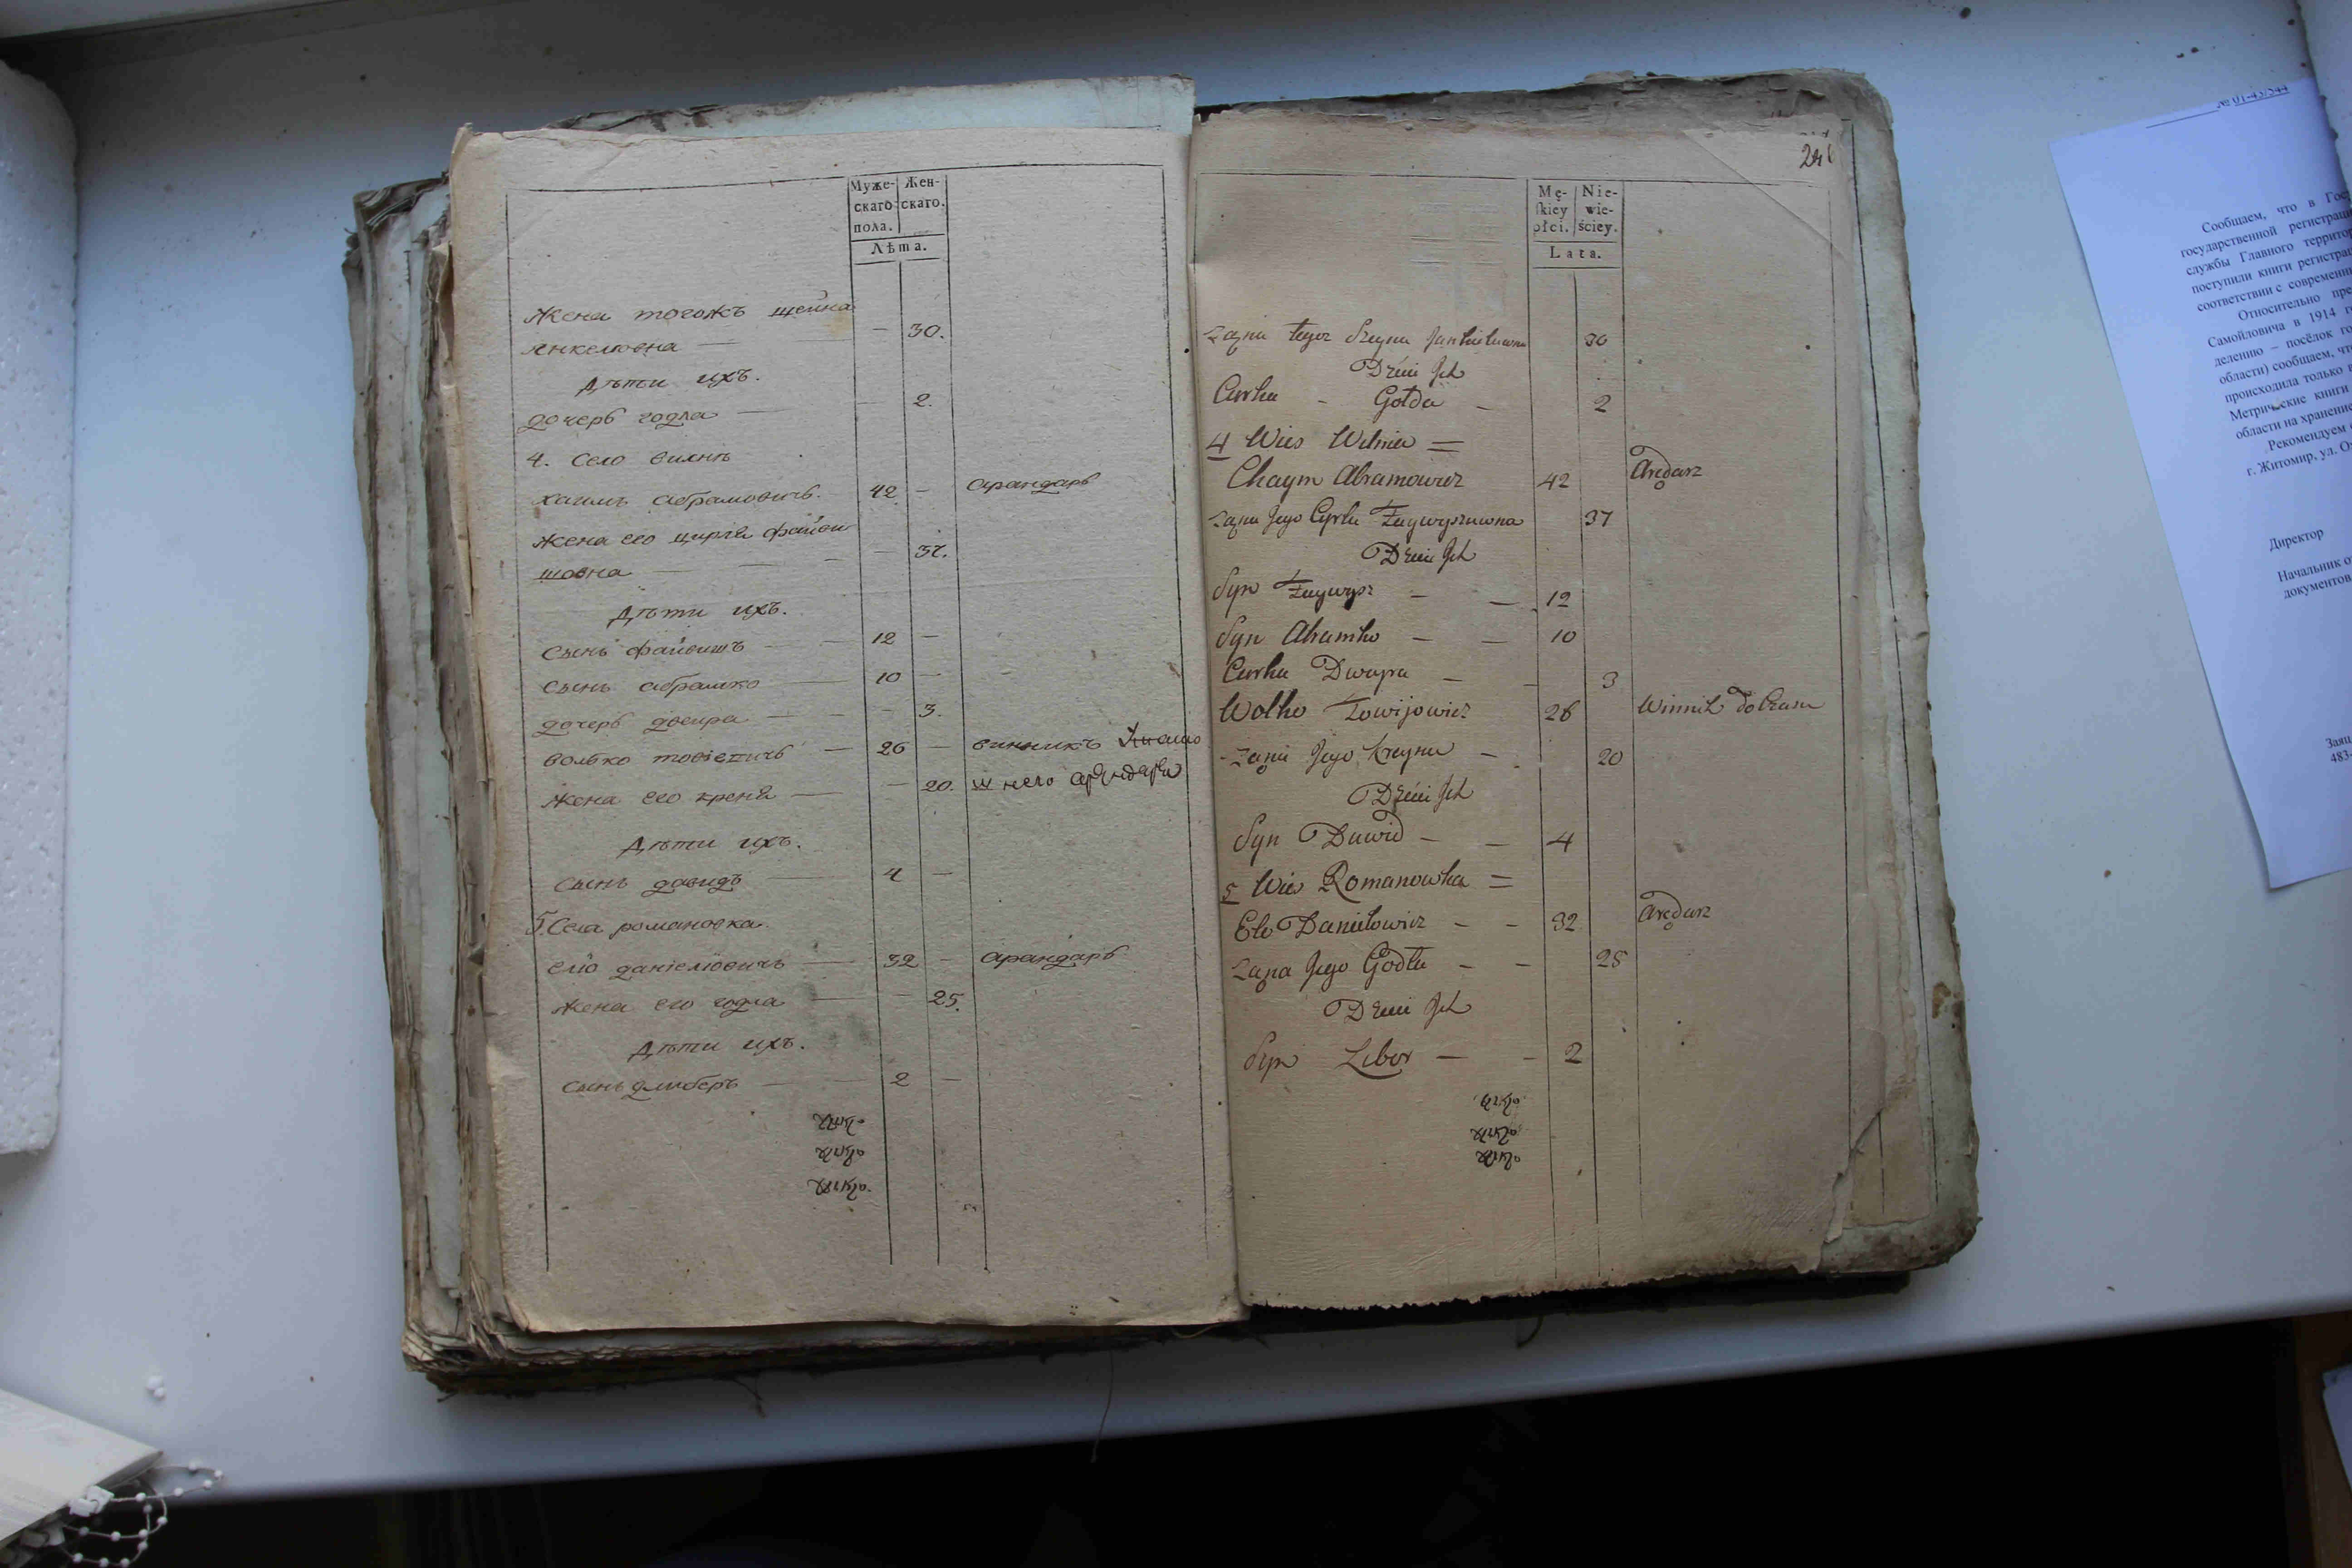 Муже- Жен-
скаго скаго.
пола.
Лѣта.
Жена тогожъ шейна
Янкелювна — — 30.
Дѣти ихъ.
дочерь годла — — 2.
4. Село вилня
хаимъ абрамовичъ. 42 — арандарь
Жена его цирля файви
шовна — — — 37.
Дѣти ихъ.
сынъ файвишъ — 12 —
сынъ абрамко — 10 —
дочерь двейра — — — 3.
волько товіевичъ — 26 — винникъ
Жена его креня — — 20. него
Дѣти ихъ.
сынъ давидъ — 4 —
5. Села романовка.
елю даніеловичъ — 32 — арандарь
Жена его годла — — 25.
Дѣти ихъ.
сынъ — — 2 —
246
Mę- Nie-
skiey wie-
płci. ściey.
Lata.
Żąna tegoż Szeyna Jankieluwna 30
Dzieci Jch
Curka - Gołda - 2
4 Wieś Wilnia =
Chaym Abramowicz 42 Arędarz
Żąna Jego Cyrla Faywyszuwna 37
Dzieci Jch
Syn Faywysz — — 12
Syn Abramko — — 10
Curka Dwayra — - 3
Wolko Towijowicz 26 Winnik do Czasu
Żąna Jego Kreyna — 20
Dzieci Jch
Syn Dawid — — 4
5 Wieś Romanowka =
Elo Danielowicz — — 32 Arędarz
Żąna Jego Godla — — 25
Dzieci Jch
Syn Libor — - 2
№ 01-43/544
Сообщаем, что в
государственной
службы Главного
поступили книги
соответствии с
Относительно
Самойловича в 1914
делению – посёлок
области) сообщаем,
происходила только в
Метрические книги
области на хранение
Рекомендуем
г. Житомир, ул.
Директор
Начальник